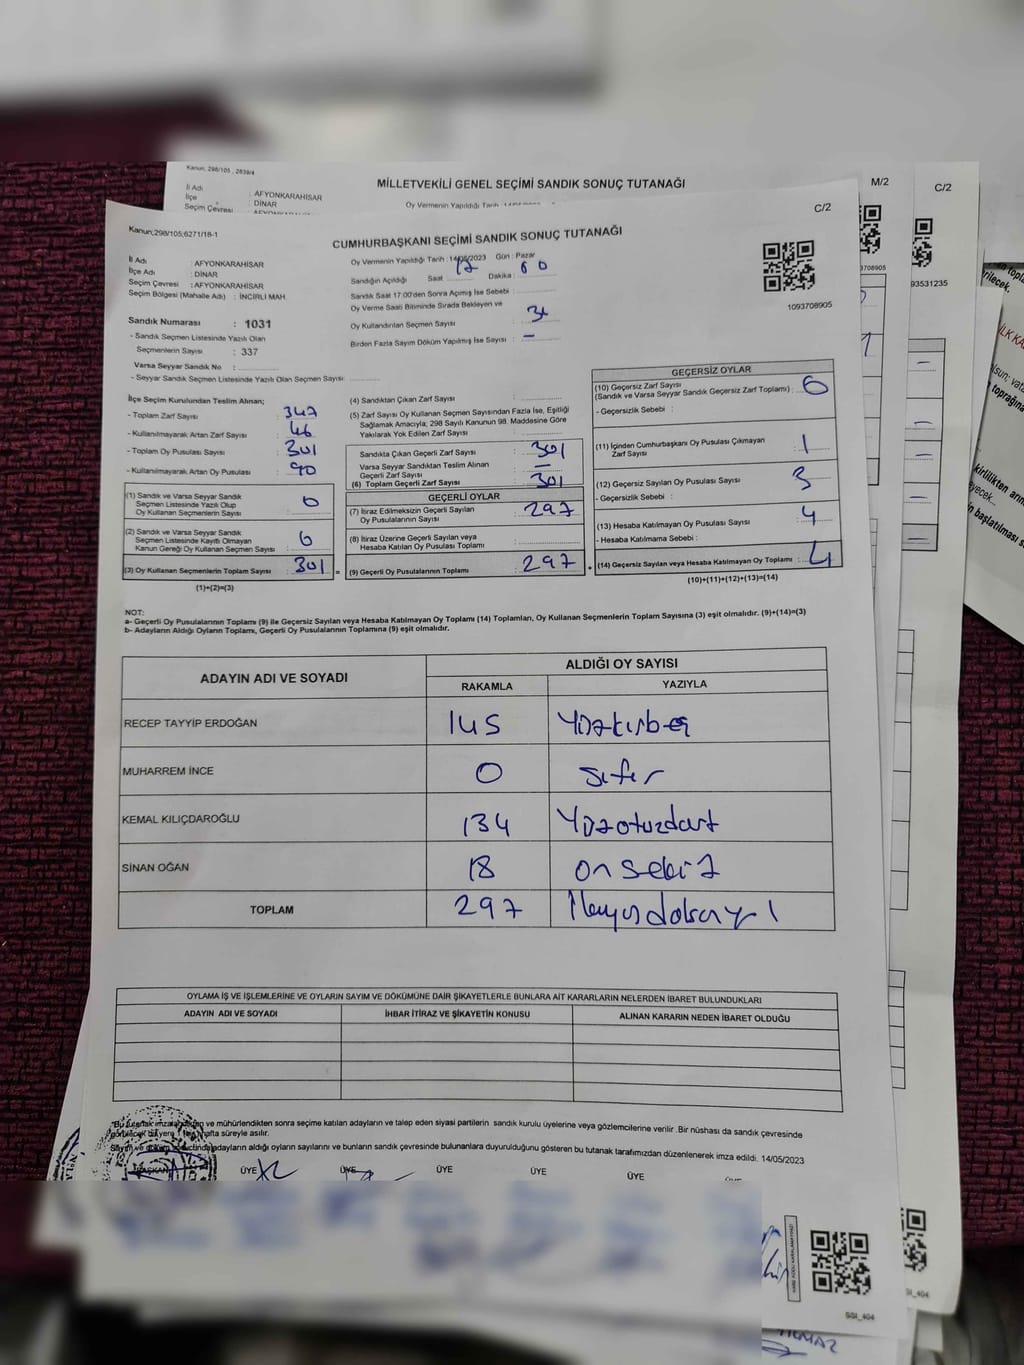 Kanun; 298/105 , 2839/4
MİLLETVEKİLİ GENEL SEÇİMİ SANDIK SONUÇ TUTANAĞI
M/2
C/2
İl Adı : AFYONKARAHİSAR
İlçe : DİNAR
Seçim Çevresi
Oy Vermenin Yapıldığı Tarih
C/2
Kanun;298/105;6271/18-1
CUMHURBAŞKANI SEÇİMİ SANDIK SONUÇ TUTANAĞI
İl Adı : AFYONKARAHİSAR
İlçe Adı : DİNAR
Seçim Çevresi : AFYONKARAHİSAR
Seçim Bölgesi (Mahalle Adı) : İNCİRLİ MAH.
Oy Vermenin Yapıldığı Tarih : 14/05/2023 Gün : Pazar
Sandığın Açıldığı Saat : 17 Dakika :
Sandık Saat 17:00'den Sonra Açımış İse Sebebi :
Oy Verme Saati Bitiminde Sırada Bekleyen ve
Oy Kullandırılan Seçmen Sayısı :
Birden Fazla Sayım Döküm Yapılmış İse Sayısı : –
1093708905
3708905
93531235
Sandık Numarası : 1031
- Sandık Seçmen Listesinde Yazılı Olan
Seçmenlerin Sayısı : 337
Varsa Seyyar Sandık No :
- Seyyar Sandık Seçmen Listesinde Yazılı Olan Seçmen Sayısı:
İlçe Seçim Kurulundan Teslim Alınan;
- Toplam Zarf Sayısı : 347
- Kullanılmayarak Artan Zarf Sayısı : 46
- Toplam Oy Pusulası Sayısı : 301
- Kullanılmayarak Artan Oy Pusulası : 90
(1) Sandık ve Varsa Seyyar Sandık
Seçmen Listesinde Yazılı Olup
Oy Kullanan Seçmenlerin Sayısı :
(2) Sandık ve Varsa Seyyar Sandık
Seçmen Listesinde Kayıtlı Olmayan
Kanun Gereği Oy Kullanan Seçmen Sayısı :
(3) Oy Kullanan Seçmenlerin Toplam Sayısı : 301
(1)+(2)=(3)
(4) Sandıktan Çıkan Zarf Sayısı :
(5) Zarf Sayısı Oy Kullanan Seçmen Sayısından Fazla İse, Eşitliği
Sağlamak Amacıyla; 298 Sayılı Kanunun 98. Maddesine Göre
Yakılarak Yok Edilen Zarf Sayısı :
Sandıkta Çıkan Geçerli Zarf Sayısı : 301
Varsa Seyyar Sandıktan Teslim Alınan
Geçerli Zarf Sayısı : –
(6) Toplam Geçerli Zarf Sayısı : 301
GEÇERLİ OYLAR
(7) İtiraz Edilmeksizin Geçerli Sayılan
Oy Pusulalarının Sayısı : 297
(8) İtiraz Üzerine Geçerli Sayılan veya
Hesaba Katılan Oy Pusulası Toplamı :
(9) Geçerli Oy Pusulalarının Toplamı : 297
GEÇERSİZ OYLAR
(10) Geçersiz Zarf Sayısı
(Sandık ve Varsa Seyyar Sandık Geçersiz Zarf Toplamı) :
- Geçersizlik Sebebi :
(11) İçinden Cumhurbaşkanı Oy Pusulası Çıkmayan
Zarf Sayısı : 1
(12) Geçersiz Sayılan Oy Pusulası Sayısı : 3
- Geçersizlik Sebebi :
(13) Hesaba Katılmayan Oy Pusulası Sayısı : 4
- Hesaba Katılmama Sebebi :
(14) Geçersiz Sayılan veya Hesaba Katılmayan Oy Toplamı : 4
(10)+(11)+(12)+(13)=(14)
NOT:
a- Geçerli Oy Pusulalarının Toplamı (9) ile Geçersiz Sayılan veya Hesaba Katılmayan Oy Toplamı (14) Toplamları, Oy Kullanan Seçmenlerin Toplam Sayısına (3) eşit olmalıdır. (9)+(14)=(3)
b- Adayların Aldığı Oyların Toplamı, Geçerli Oy Pusulalarının Toplamına (9) eşit olmalıdır.
ADAYIN ADI VE SOYADI
ALDIĞI OY SAYISI
RAKAMLA YAZIYLA
RECEP TAYYİP ERDOĞAN 145 Yüzkırkbeş
MUHARREM İNCE 0 sıfır
KEMAL KILIÇDAROĞLU 134 Yüzotuzdört
SİNAN OĞAN 18 on sekiz
TOPLAM 297
OYLAMA İŞ VE İŞLEMLERİNE VE OYLARIN SAYIM VE DÖKÜMÜNE DAİR ŞİKAYETLERLE BUNLARA AİT KARARLARIN NELERDEN İBARET BULUNDUKLARI
ADAYIN ADI VE SOYADI İHBAR İTİRAZ VE ŞİKAYETİN KONUSU ALINAN KARARIN NEDEN İBARET OLDUĞU
"Bu tutanak imzalandıktan ve mühürlendikten sonra seçime katılan adayların ve talep eden siyasi partilerin sandık kurulu üyelerine veya gözlemcilerine verilir .Bir nüshası da sandık çevresinde
görülecek bir yere 1 hafta süreyle asılır.
adayların aldığı oyların sayılarını ve bunların sandık çevresinde bulunanlara duyurulduğunu gösteren bu tutanak tarafımızdan düzenlenerek imza edildi. 14/05/2023
BAŞKAN ÜYE ÜYE ÜYE ÜYE ÜYE
SGI_404